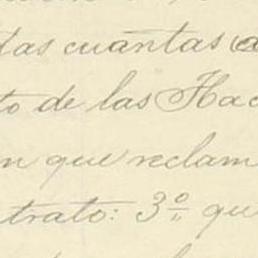 das cuantas
to de las Hac
n que reclam
trato: 3º que